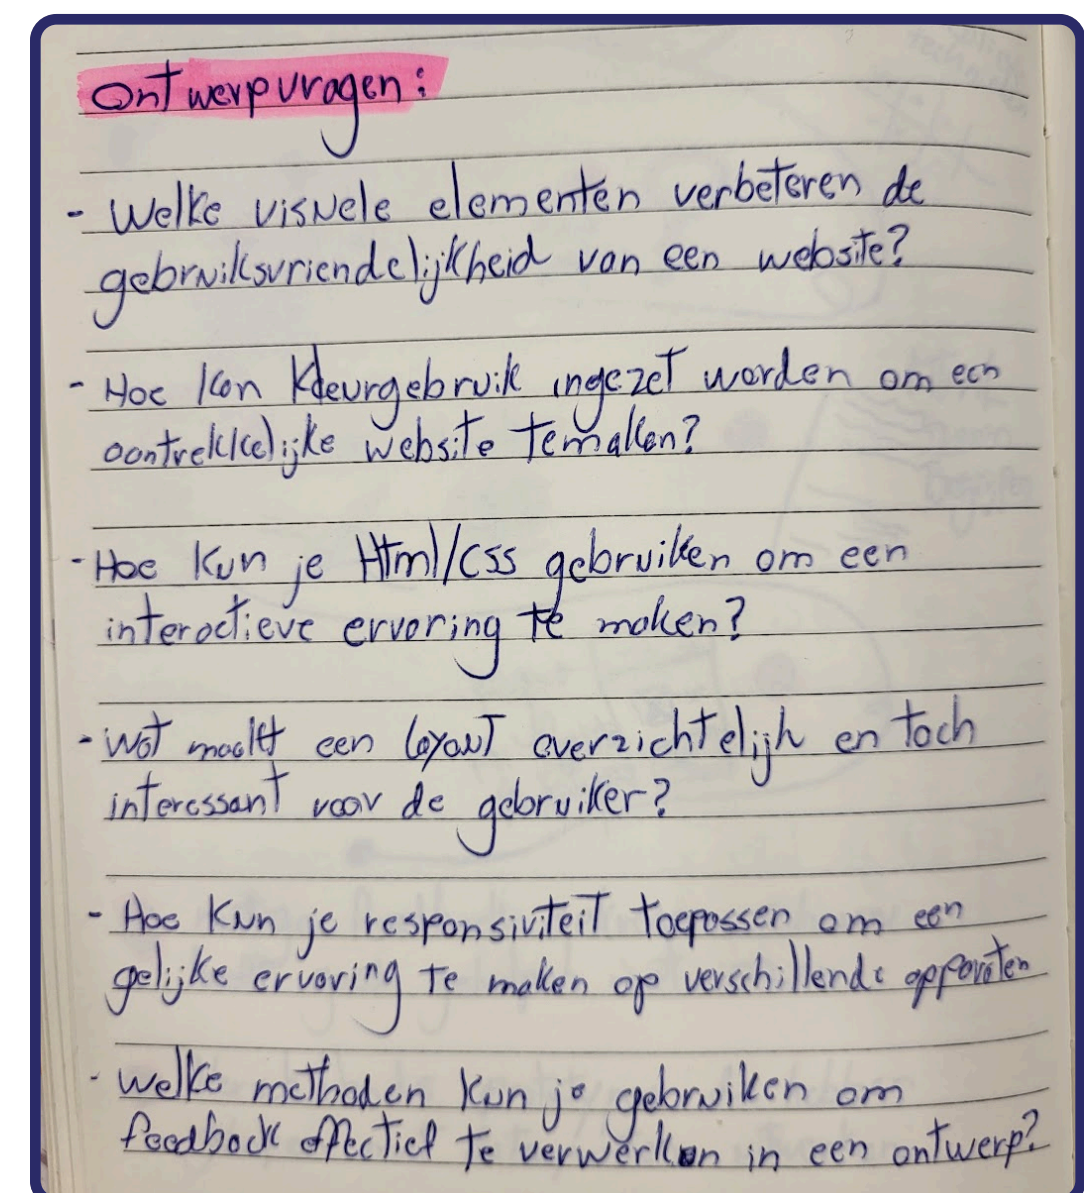 Ontwerpvragen:
- Welke visuele elementen verbeteren de
gebruiksvriendelijkheid van een website?
- Hoe kan kleurgebruik ingezet worden om een
aantrekkelijke website temaken?
- Hoe kun je Html/css gebruiken om een
interactieve ervaring te maken?
- Wat maakt een layout overzichtelijk en toch
interessant voor de gebruiker?
- Hoe kun je responsiviteit toepassen om een
gelijke ervaring te maken op verschillende apparaten
- Welke methoden kun je gebruiken om
feedback effectief te verwerken in een ontwerp?